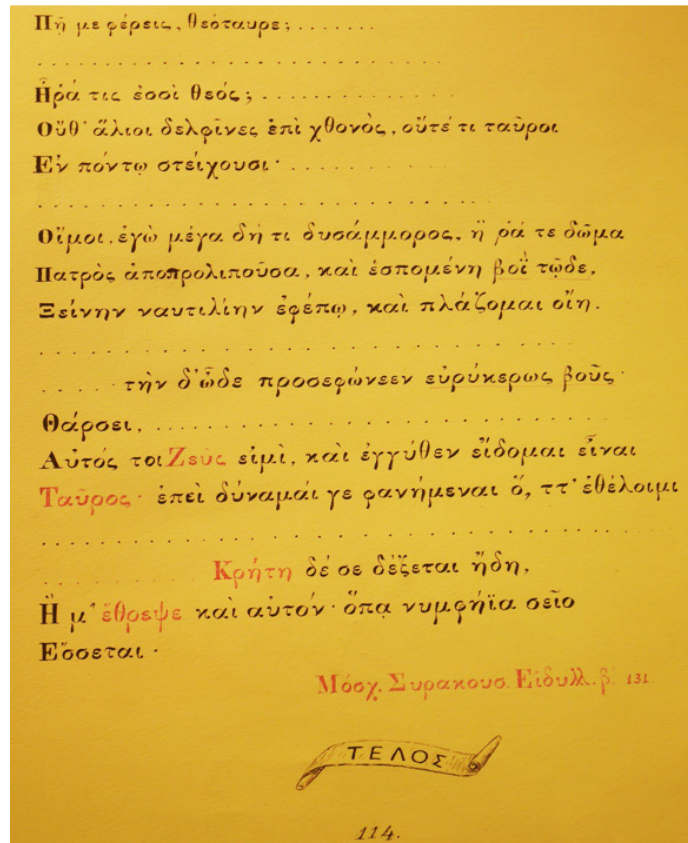 Πῆ με φέρεις, θεόταυρε; . . . . . . .
. . . . . . . . . . . . . . . . . . . . . . . . . . . .
Ἦρά τις ἐσσὶ θεός; . . . . . . . . . . . . . .
Οὔθ' ἅλιοι δελφῖνες ἐπὶ χθονὸς, οὔτέ τι ταῦροι
Ἐν πόντῳ στείχουσι· . . . . . . . . . .
. . . . . . . . . . . . . . . . . . . . . . . . . . . . . . .
Οἴμοι, ἐγὼ μέγα δή τι δυσάμμορος, ἥ ῥά τε δῶμα
Πατρὸς ἀποπρολιποῦσα, καὶ ἑσπομένη βοῒ τῷδε,
Ξείνην ναυτιλίην ἐφέπω, καὶ πλάζομαι οἴη.
. . . . . . . . . . . . . . . . . . . . . . . . . . . . . . . . . . . .
. . . . . τὴν δ'ὧδε προσεφώνεεν εὐρύκερως βοῦς·
Θάρσει, . . . . . . . . . . . . . . . . . . . . . . . . . . . . . .
Αὐτός τοι Ζεύς εἰμὶ, καὶ ἐγγύθεν εἴδομαι εἶναι
Ταῦρος· ἐπεὶ δύναμαί γε φανήμεναι ὅ, ττ' ἐθέλοιμι
. . . . . . . . . . . . . . . . . . . . . . . . . . . . . . . . . . . . . . . . . .
. . . . . . . . . . . Κρήτη δέ σε δέξεται ἤδη,
Ἥ μ' ἔθρεψε καὶ αὐτόν· ὅπα νυμφήϊα σεῖο
Ἔσσεται·
Μόσχ. Συρακουσ. Εἰδυλλ. β. 131
ΤΕΛΟΣ
114.